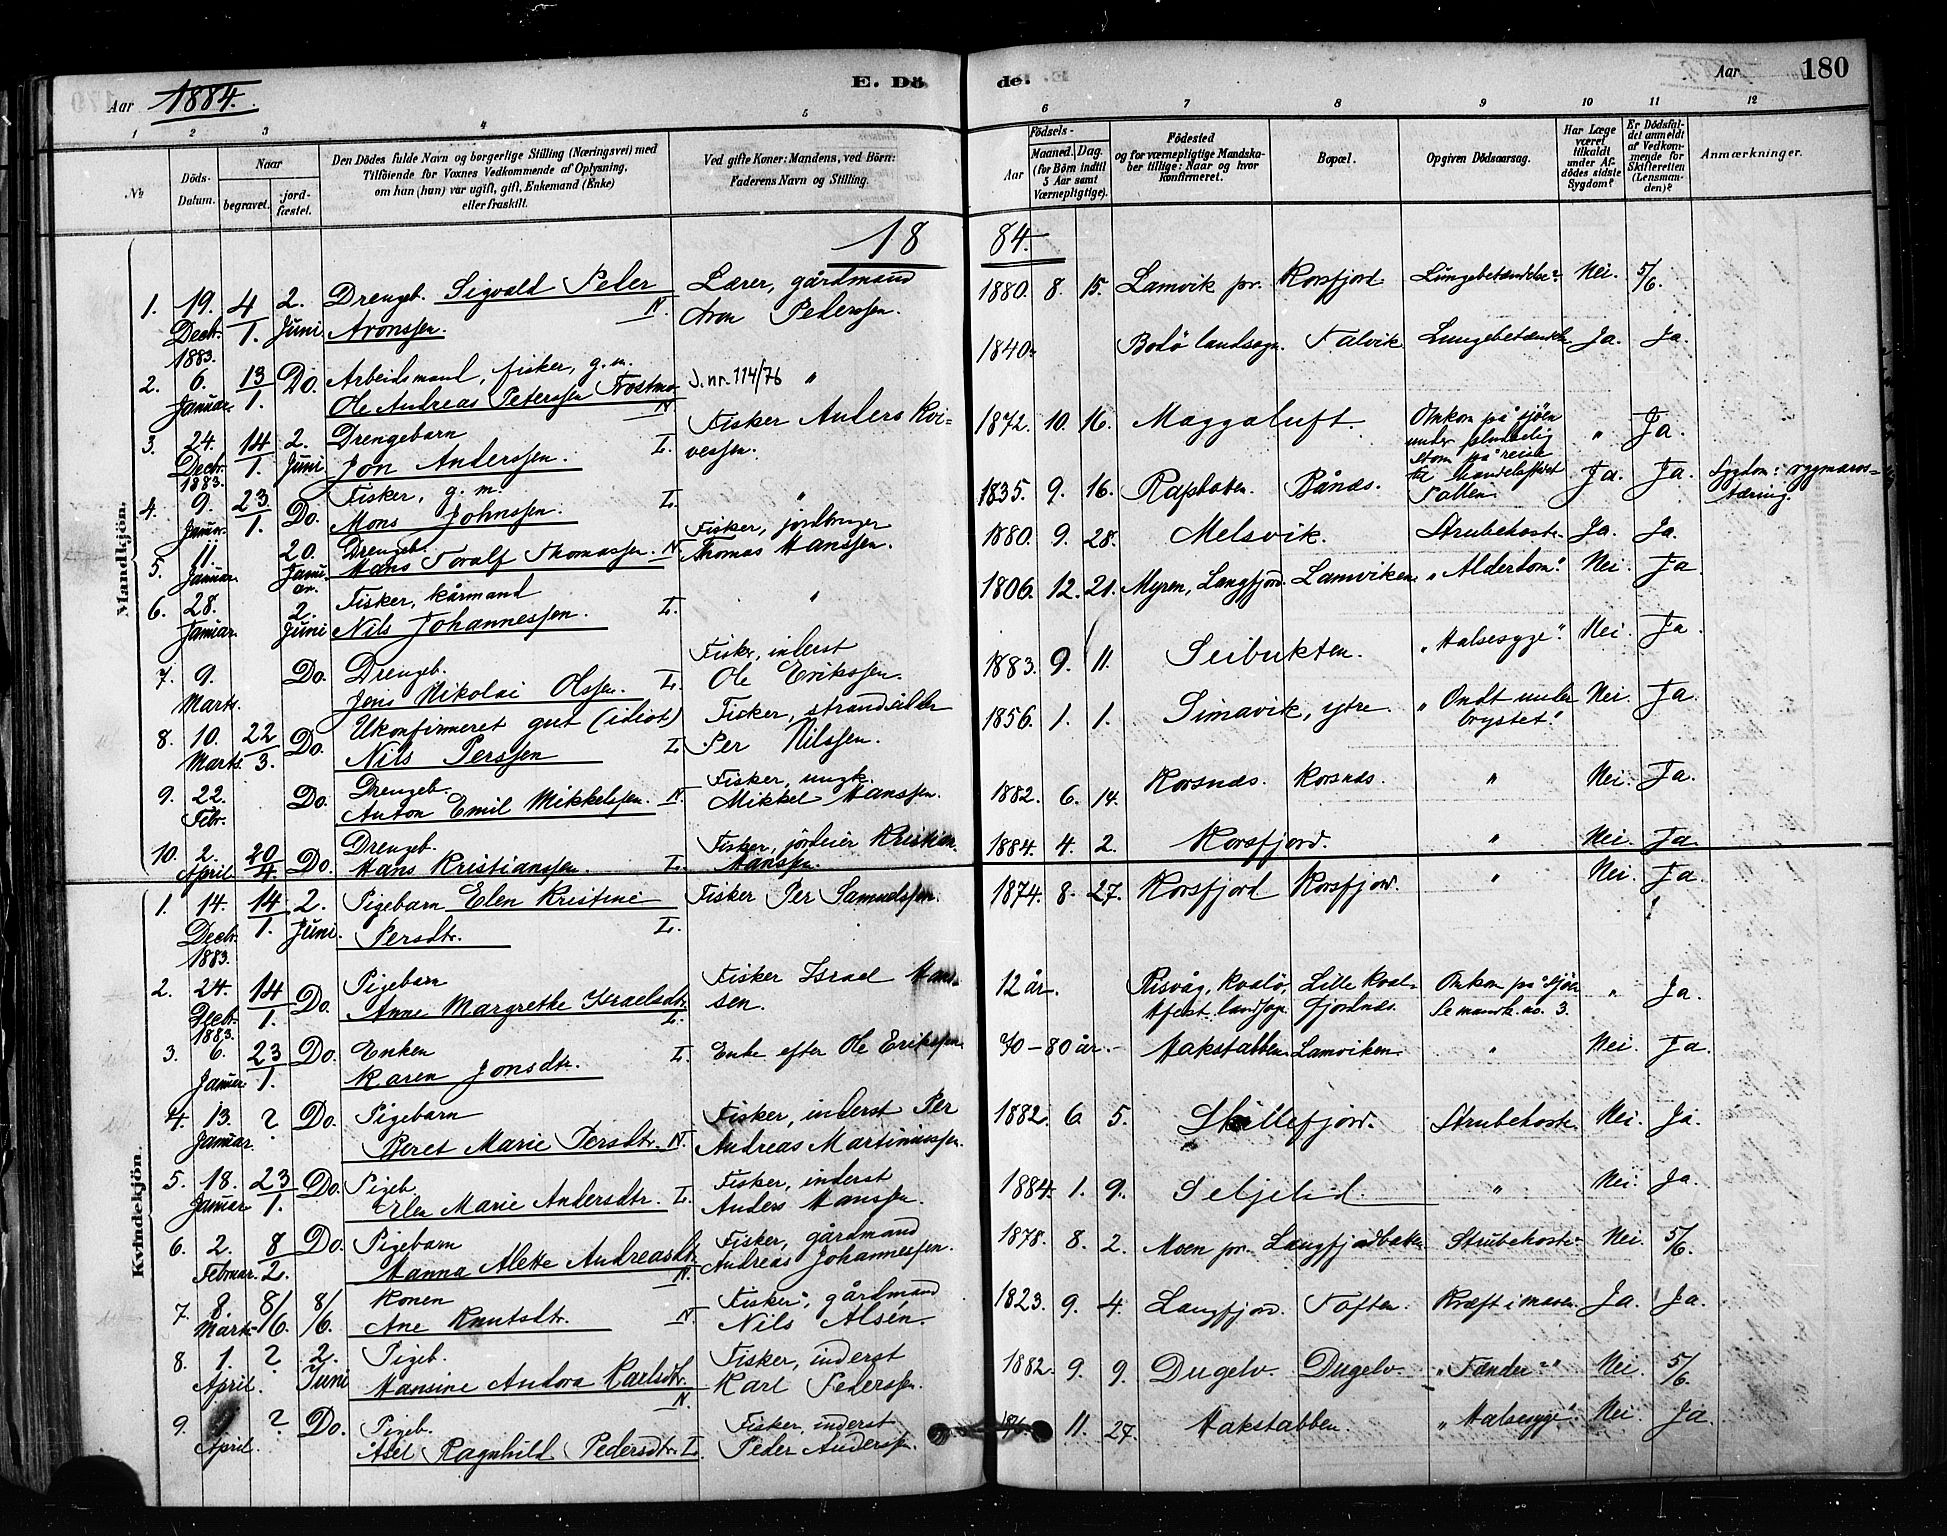 Aar 1884. E. Döde. Aar 180
1 2 3 4 5 6 7 8 9 10 11 12
№ Döds-Datum. Naar begravet. jordfæstet. Den Dödes fulde Navn og borgerlige Stilling (Næringsvei) med Tilföiende for Voxnes Vedkommende af Oplysning, om han (hun) var ugift, gift, Enkemand (Enke) eller fraskilt. Ved gifte Koner: Mandens, ved Börn: Faderens Navn og Stilling. Födsels- Aar Maaned. Dag. (for Börn indtil 5 Aar samt Værnepligtige). Födested og for værnepligtige Mandskaber tillige: Naar og hvor konfirmeret. Bopæl. Opgiven Dödsaarsag. Har Læge været tilkaldt under Afdödes sidste Sygdom? Er Dödsfaldet anmeldt af Vedkommende for Skifteretten (Lensmanden)? Anmærkninger.
1884.
Mandkjön.
1. 19. Decbr. 1883. 4/1. 2. Juni Drengeb. Sigvald Peder Aronssen N. Lærer, gårdmand Aron Pederssen. 1880. 8. 15. Lamvik pr. Korsfjord Lungebetændelse. Nei. 5/6.
2. 6. Januar. 13/1. Do. Arbeidsmand, fisker, g. m. Ole Andreas Peterssen Trostmo N J.nr. 114/76 " 1840. Bodö landsogn Talvik Lungebetændelse Ja. Ja.
3. 24. Decbr. 1883. 14/1. 2. Juni Drengebarn Jon Anderssen. L. Fisker Anders Kvivessen. 1872. 10. 16. Maggaluft. Omkom på sjöen under pludselig storm på reise til handelsstedet Talten. " Ja.
4. 9. Januar. 23/1. Do. Fisker, g. m. Mons Johnssen. L. " 1835. 9. 16. Rapbaten. Bånæs. Ja. Ja. Sygdom: rygmarvstæring.
5. 11. Januar. 20. Januar. Drengeb. Hans Toralf Thomassen. N. Fisker, jordbruger Thomas Hanssen. 1880. 9. 28. Melsvik. Strubehoste. Ja. Ja.
6. 28. Januar. 2. Juni Fisker, kårmand Nils Johannessen. L. " 1806. 12. 21. Myren, Langfjord. Lamviken "Alderdom". Nei. Ja
7. 9. Marts. Do. Drengeb. Jens Nikolai Olssen. L. Fisker, inderst Ole Erikssen. 1883. 9. 11. Seibukten. "Halsesyge". Nei. Ja.
8. 10. Marts. 22/3. Do. Ukonfirmeret gut (idiot) Nils Perssen L. Fisker, strandsidder Per Nilssen. 1856. 1. 1. Simavik, ytre. "Ondt under brystet". Nei. Ja.
9. 22. Febr. Do. Drengeb. Anton Emil Mikkelssen. N. Fisker, ungk. Mikkel Hanssen. 1882. 6. 14. Korsnæs. Korsnæs. " Nei. Ja.
10. 2. April 20/4 Do. Drengeb. Hans Kristianssen. L. Fisker, jordeier Kristian Hanssen. 1884. 4. 2. Korsfjord. " Nei. Ja.
Kvindekjön.
1. 14. Decbr. 1883. 14/1. 2. Juni. Pigebarn Elen Kristine Persdtr. L. Fisker Per Samuelssen. 1874. 8. 27. Korsfjord Korsfjord. " Nei. Ja.
2. 24. Decbr. 1883. 14/1. Do. Pigebarn Anne Margrethe Israelsdtr. L. Fisker Israel Hanssen. 12 år. Risvåg, Kvalö, Hfest. landsogn. Lille Kvalfjordnæs. Omkom på sjöen Se mandk. no. 3. " Ja.
3. 6. Januar 23/1. Do. Enken Karen Jonsdtr. L. Enke efter Ole Erikssen. 70–80 år. Hakstabben Lamviken " Nei. Ja.
4. 13. Januar. ? Do. Pigebarn Beret Marie Persdtr. N. Fisker, inderst Per Andreas Martinussen. 1882. 6. 5. Skillefjord. Strubehoste. Nei. Ja.
5. 18. Januar 23/1. Do. Pigeb. Elen Marie Andersdtr. L. Fisker, inderst Anders Hanssen. 1884. 1. 9. Seljelid " Nei. Ja.
6. 2. Februar. 8/2. Do. Pigebarn Hanna Alette Andreasdtr. N. Fisker, gårdmand Andreas Johannessen. 1878. 8. 2. Moen pr. Langfjordbotten Strubehoste. Nei. 5/6.
7. 8. Marts. 8/6. 8/6. Konen Ane Knutsdtr. N. Fisker, gårdmand Nils Alsén. 1823. 9. 4. Langfjord. Toften. Kræft i maven. Ja. Ja.
8. 1. April. ? 2. Juni Pigeb. Hansine Andora Karlsdtr. N. Fisker, inderst Karl Pederssen. 1882. 9. 9. Dugelv. Dugelv. "Tænder" Nei. 5/6.
9. April. ? Do. Pigeb. Ragnhild Pedersdtr. L. Fisker, inderst Peder Anderssen. 11. 27. Hakstabben. "Halsesyge". Nei. Ja.